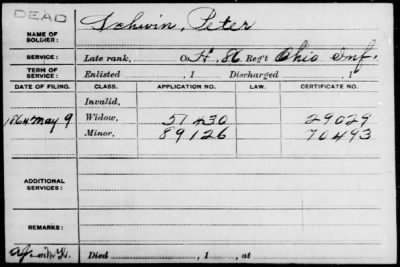 DEAD
NAME OF SOLDIER: Schwin, Peter
SERVICE: Late rank, Co. H, 86 Reg't Ohio Inf.
TERM OF SERVICE: Enlisted , 1 Discharged , 1
DATE OF FILING. CLASS. APPLICATION NO. LAW. CERTIFICATE NO.
Invalid,
1864 May 9 Widow, 57430 29029
Minor, 89126 70493
ADDITIONAL SERVICES:
REMARKS:
Died , 1 , at